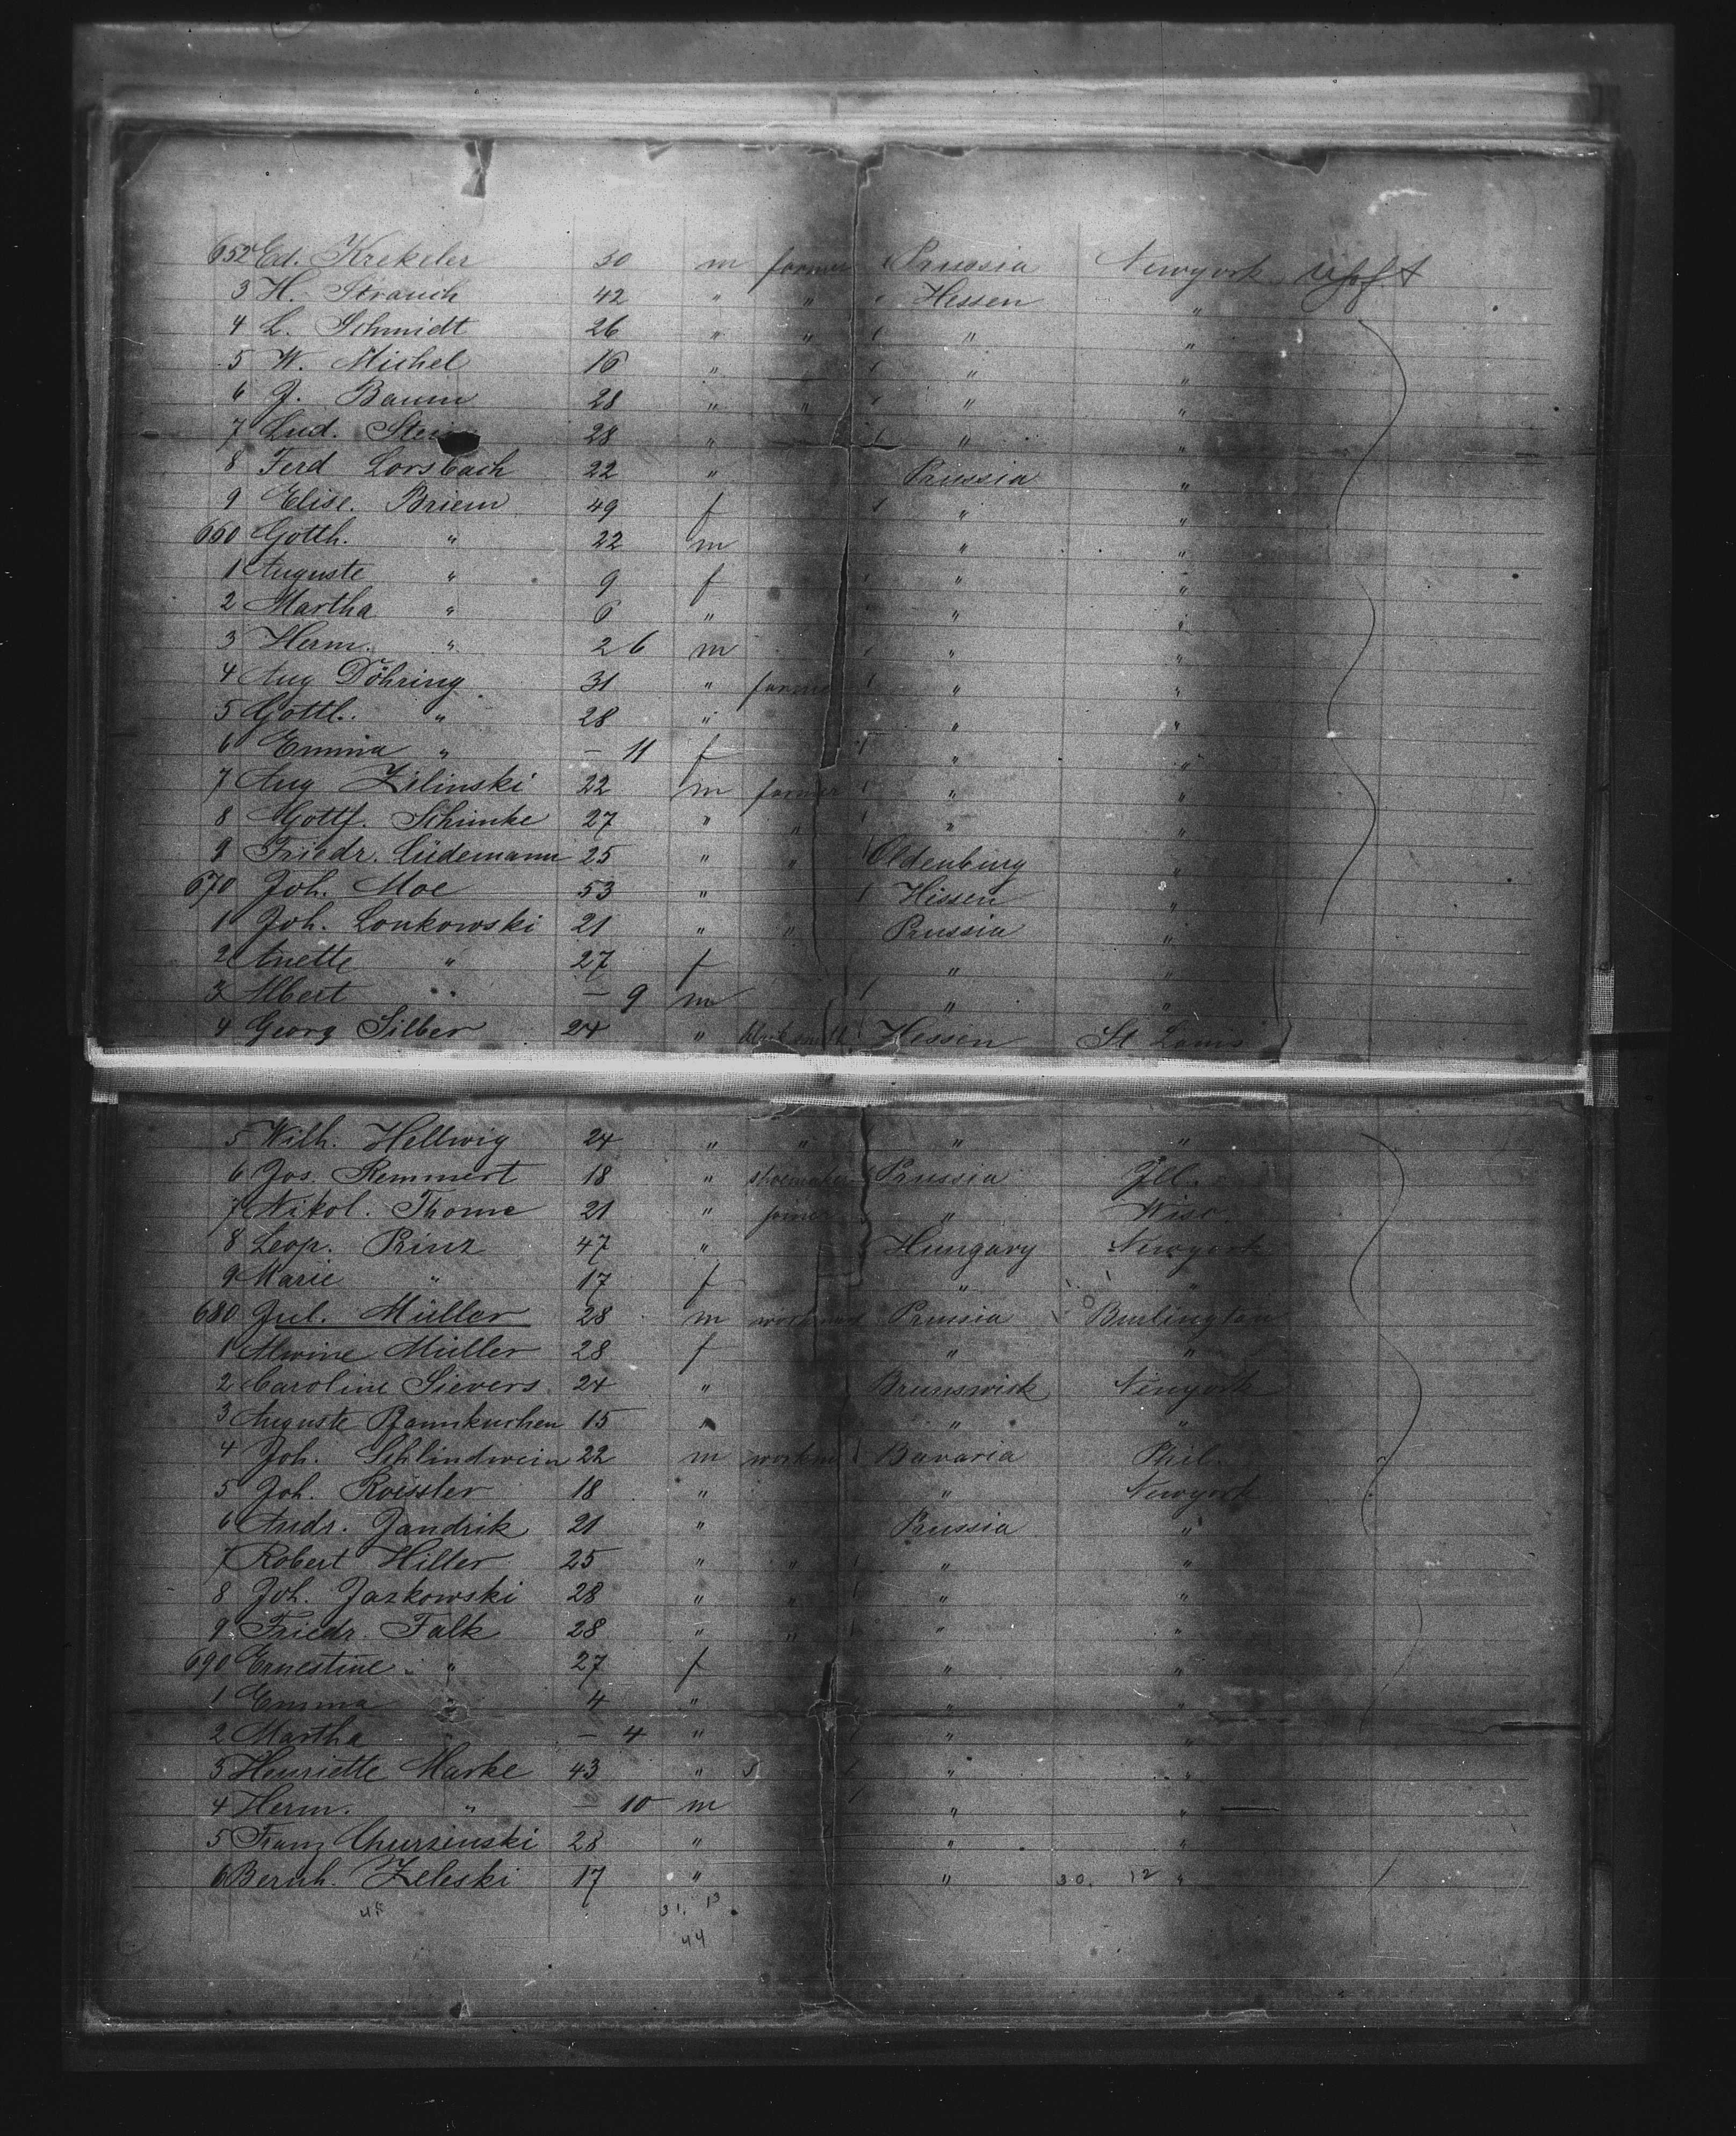 652 Ed. Krekeler 50 m farmer Prussia Newyork
3 H. Strauch 42 " " Hessen "
4 L. Schmidt 26 " " " "
5 W. Michel 16 " — " "
6 J. Baum 28 " " " "
7 Lud. Stein 28 " — " "
8 Ferd Lorsbach 22 " Prussia "
9 Elise. Briem 49 f " "
660 Gotth. " 22 m " "
1 Auguste " 9 f " "
2 Martha " 6 " " "
3 Herm. " 2 6 m " "
4 Aug Döhring 31 " farmer " "
5 Gottl. " 28 " " "
6 Emma " — 11 f " "
7 Aug Zilinski 22 m farmer " "
8 Gottf. Schimke 27 " " " "
9 Friedr. Lüdemann 25 " " Oldenburg "
670 Joh. Moe 53 " Hessen "
1 Joh. Lonkowski 21 " " Prussia "
2 Anette " 27 f " "
3 Albert " — 9 m " "
4 Georg Silber 24 " blacksmith Hessen St Louis
5 Wilh. Hellwig 24 " " " "
6 Jos. Remmert 18 " shoemaker Prussia Ill.
7 Nikol. Thome 21 " joiner " Wisc.
8 Leop. Prinz 47 " Hungary Newyork
9 Marie " 17 f " "
680 Jul. Müller 28 m workman Prussia Burlington
1 Alwine Müller 28 f " "
2 Caroline Sievers 24 " Brunswick Newyork
3 Auguste Bannkuchen 15 " " "
4 Joh. Schlindwein 22 m workm Bavaria Phil.
5 Joh. Roessler 18 " " Newyork
6 Andr. Jandrik 21 " Prussia "
7 Robert Hiller 25 " " " "
8 Joh. Jazkowski 28 " " " "
9 Friedr. Falk 28 " " " "
690 Ernestine " 27 f " "
1 Emma " 4 " " "
2 Martha " — 4 " " "
3 Henriette Marke 43 " " "
4 Herm. " — 10 m " "
5 Franz Churzinski 28 " " "
6 Bernh. Zeleski 17 " " 30. 12 "
31. 13
44